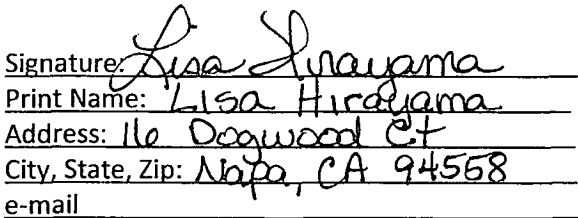 Signature: Lisa Hirayama
Print Name: Lisa Hirayama
Address: 16 Dogwood Ct
City, State, Zip: Napa, CA 94558
e-mail